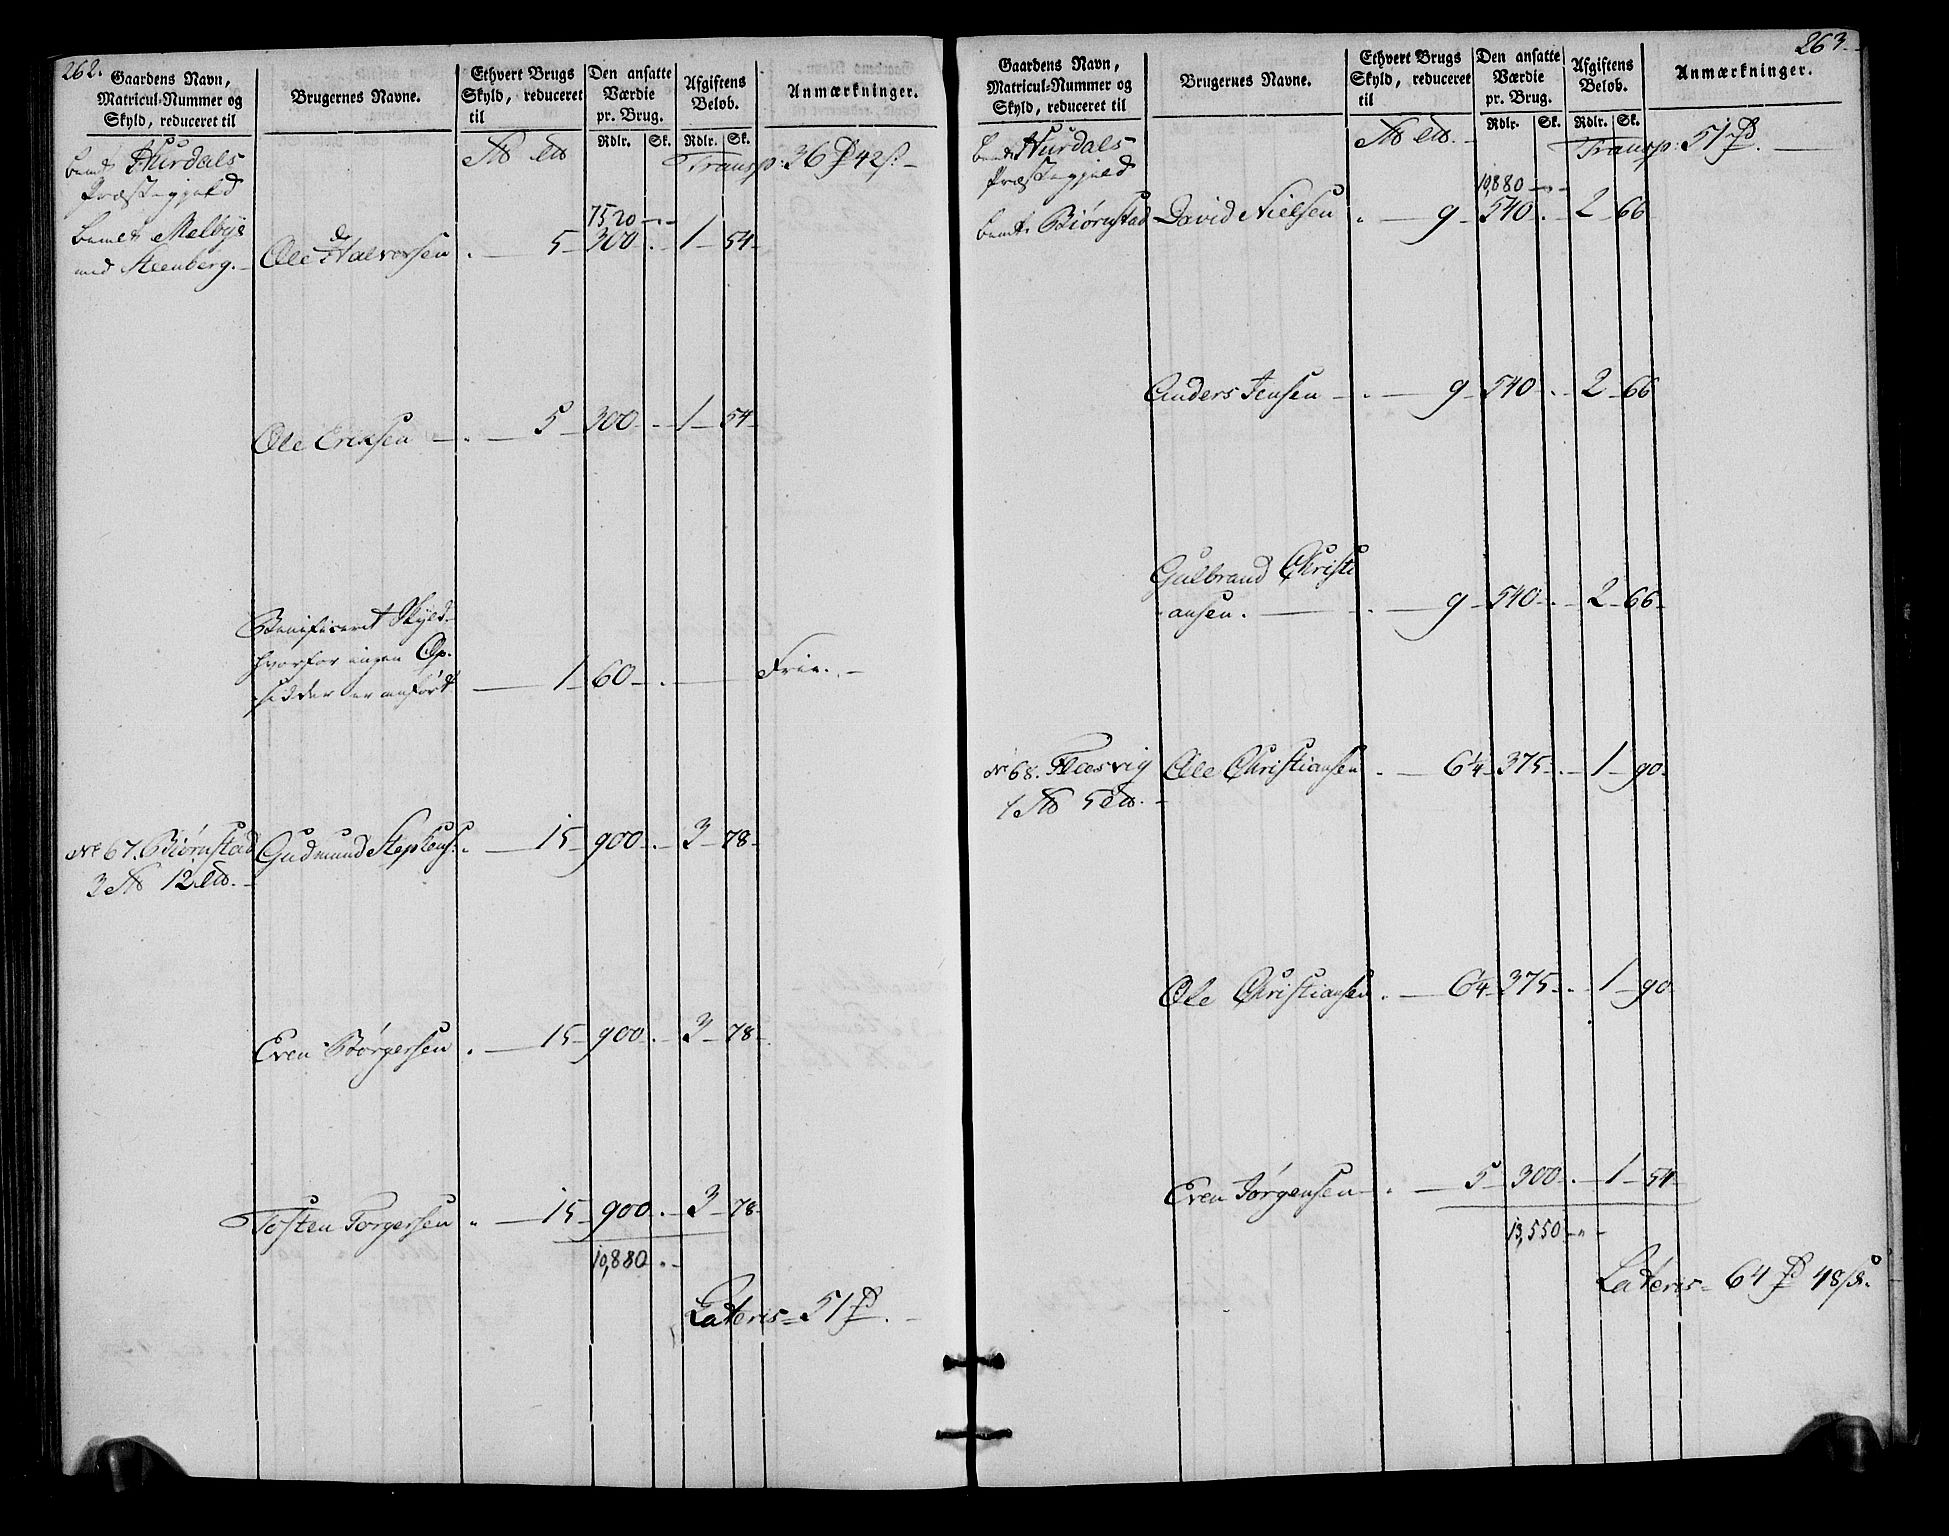 262.
Gaardens Navn, Matricul-Nummer og Skyld, reduceret til
Brugernes Navne.
Ethvert Brugs Skyld, reduceret til
Den ansatte Værdie pr. Brug.
Afgiftens Beløb.
Anmærkninger.
Rdlr. Sk. Rdlr. Sk.
Hurdals
Præstegjeld
Transp: 36 42
7520
Melbye
med Steenberg. Ole Halvorsen 5 300 1 54
Ole Ericksen 5 300 1 54
Beneficeret Skyld
hvorfor ingen Op-
sidder er anført 1 60 Frie.
No 67. Biørnstad Gudmund Stephens: 15 900 3 78
3 12
Even Børgersen 15 900 3 78
Tosten Torgersen 15 900 3 78
10,880
Lateris 51
263.
Gaardens Navn, Matricul-Nummer og Skyld, reduceret til
Brugernes Navne.
Ethvert Brugs Skyld, reduceret til
Den ansatte Værdie pr. Brug.
Afgiftens Beløb.
Anmærkninger.
Rdlr. Sk. Rdlr. Sk.
Hurdals
Præstegjeld
Transp: 51
10,880
Biørnstad David Nielsen 9 540 2 66
Anders Jensen 9 540 2 66
Gulbrand Christi
ansen. 9 540 2 66
No 68. Flæsvig Ole Christiansen 6¼ 375 1 90
1 5
Ole Christiansen 6¼ 375 1 90
Even Jørgensen 5 300 1 54
13,550
Lateris 64 48